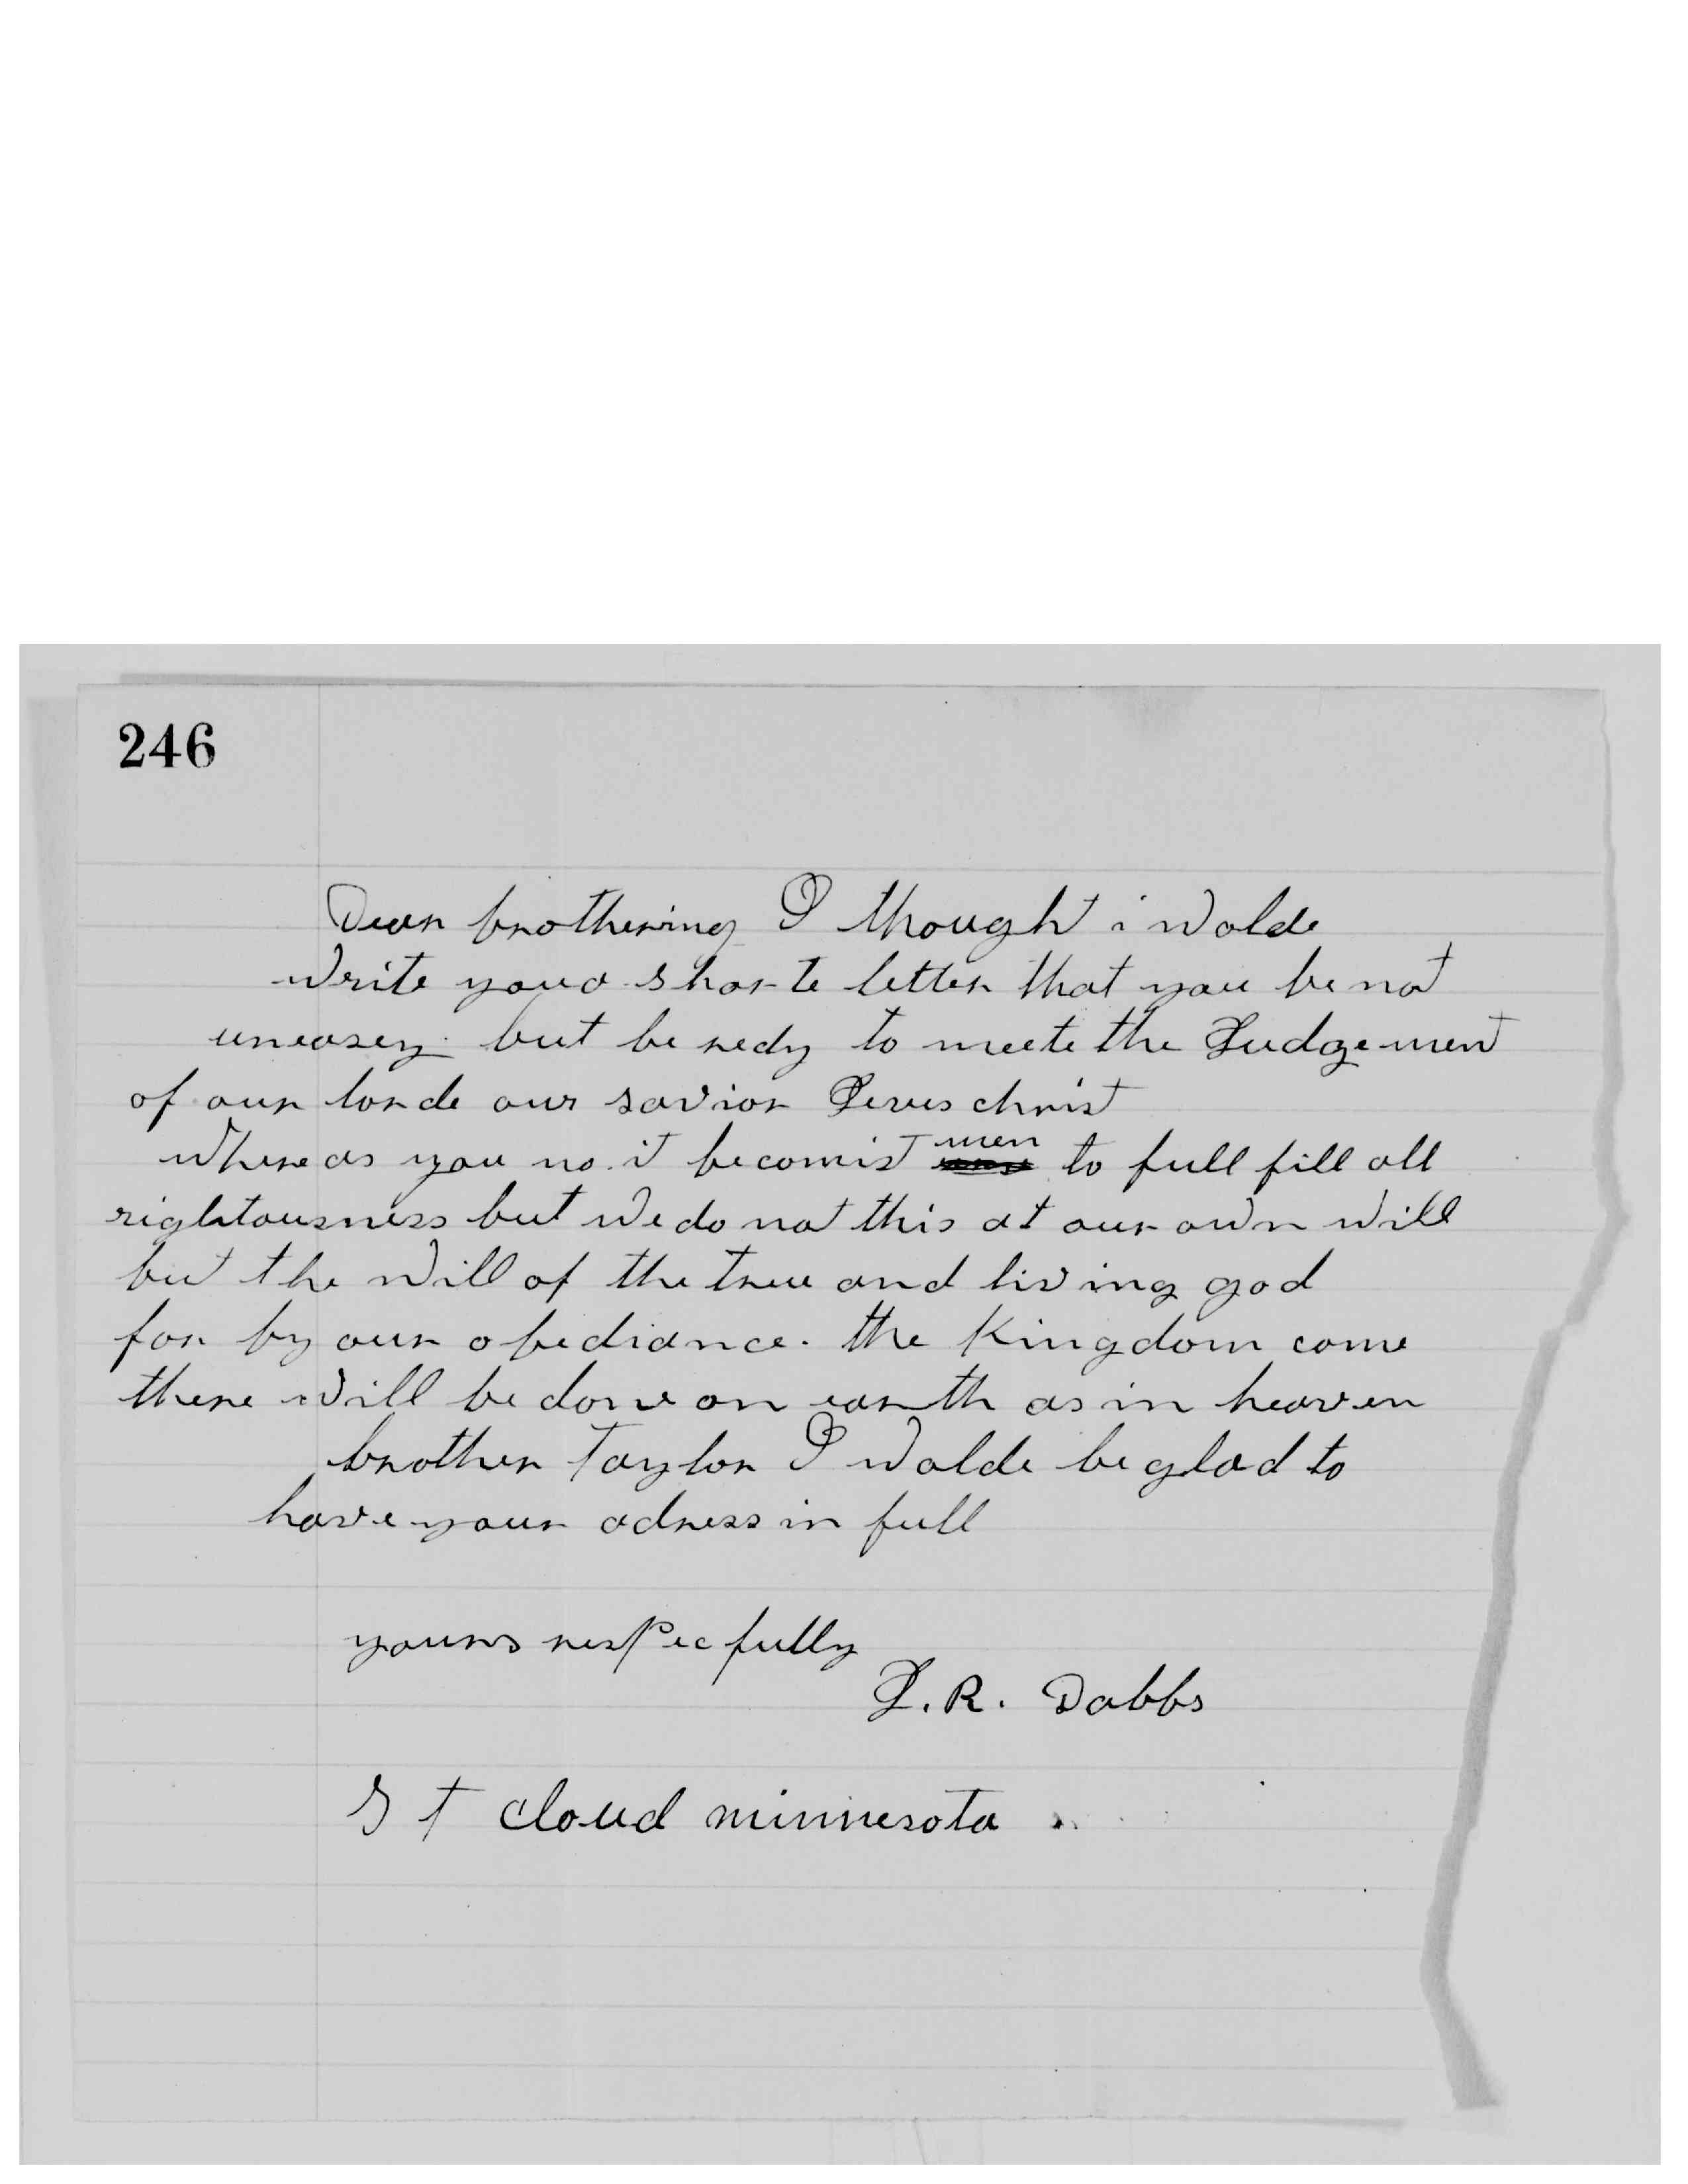 246
Dear brothering I though i wolde
write you a shorte letter that you be not
uneasey but be redy to meete the Judgement
of our lorde our savior Jesus christ
where as you no it becomist men to full fill all
rightousness but we do not this at our own will
but the will of the true and living god
for by our obediance. the Kingdom come
there will be done on earth as in heaven
brother Taylor I wolde be glad to
have your adress in full
yours respecfully
J. R. Dabbs
St cloud minnesota